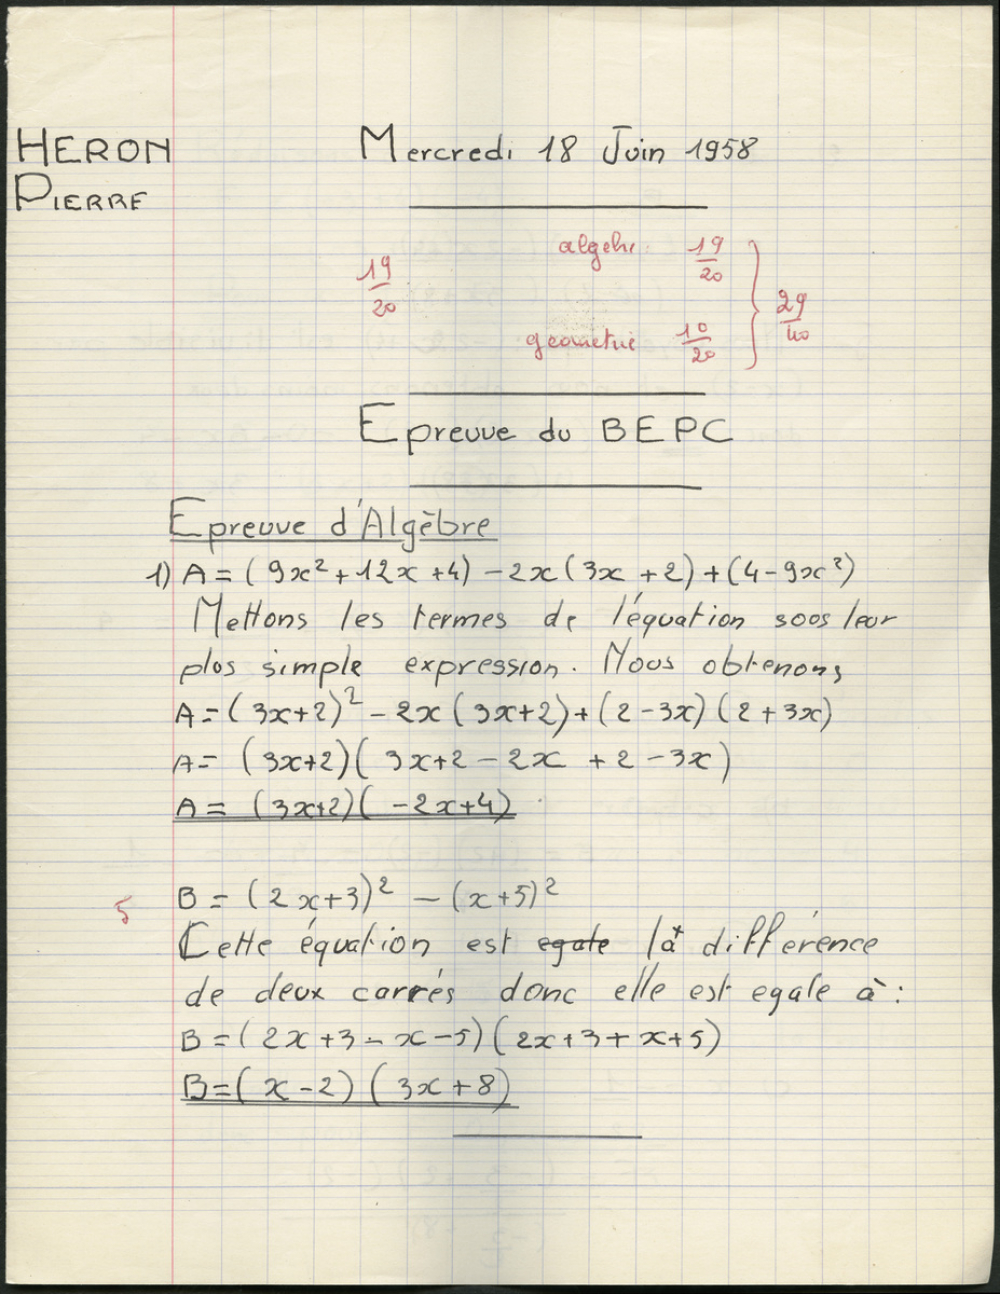 HERON
PIERRE
Mercredi 18 Juin 1958
19/20
algebre : 19/20
geometrie 10/20
29/40
Epreuve du BEPC
Epreuve d'Algèbre
1) A = (9x² + 12x + 4) - 2x (3x + 2) + (4 - 9x²)
Mettons les termes de l'équation sous leur
plus simple expression. Nous obtenons
A = (3x+2)² - 2x (3x+2) + (2 - 3x) (2 + 3x)
A = (3x+2) ( 3x+2 - 2x + 2 - 3x)
A = (3x+2) ( -2x+4)
5
B = (2x+3)² - (x+5)²
Cette équation est egale la différence
de deux carrés donc elle est egale à :
B = (2x+3 - x - 5) (2x+3+x+5)
B = (x - 2) (3x + 8)